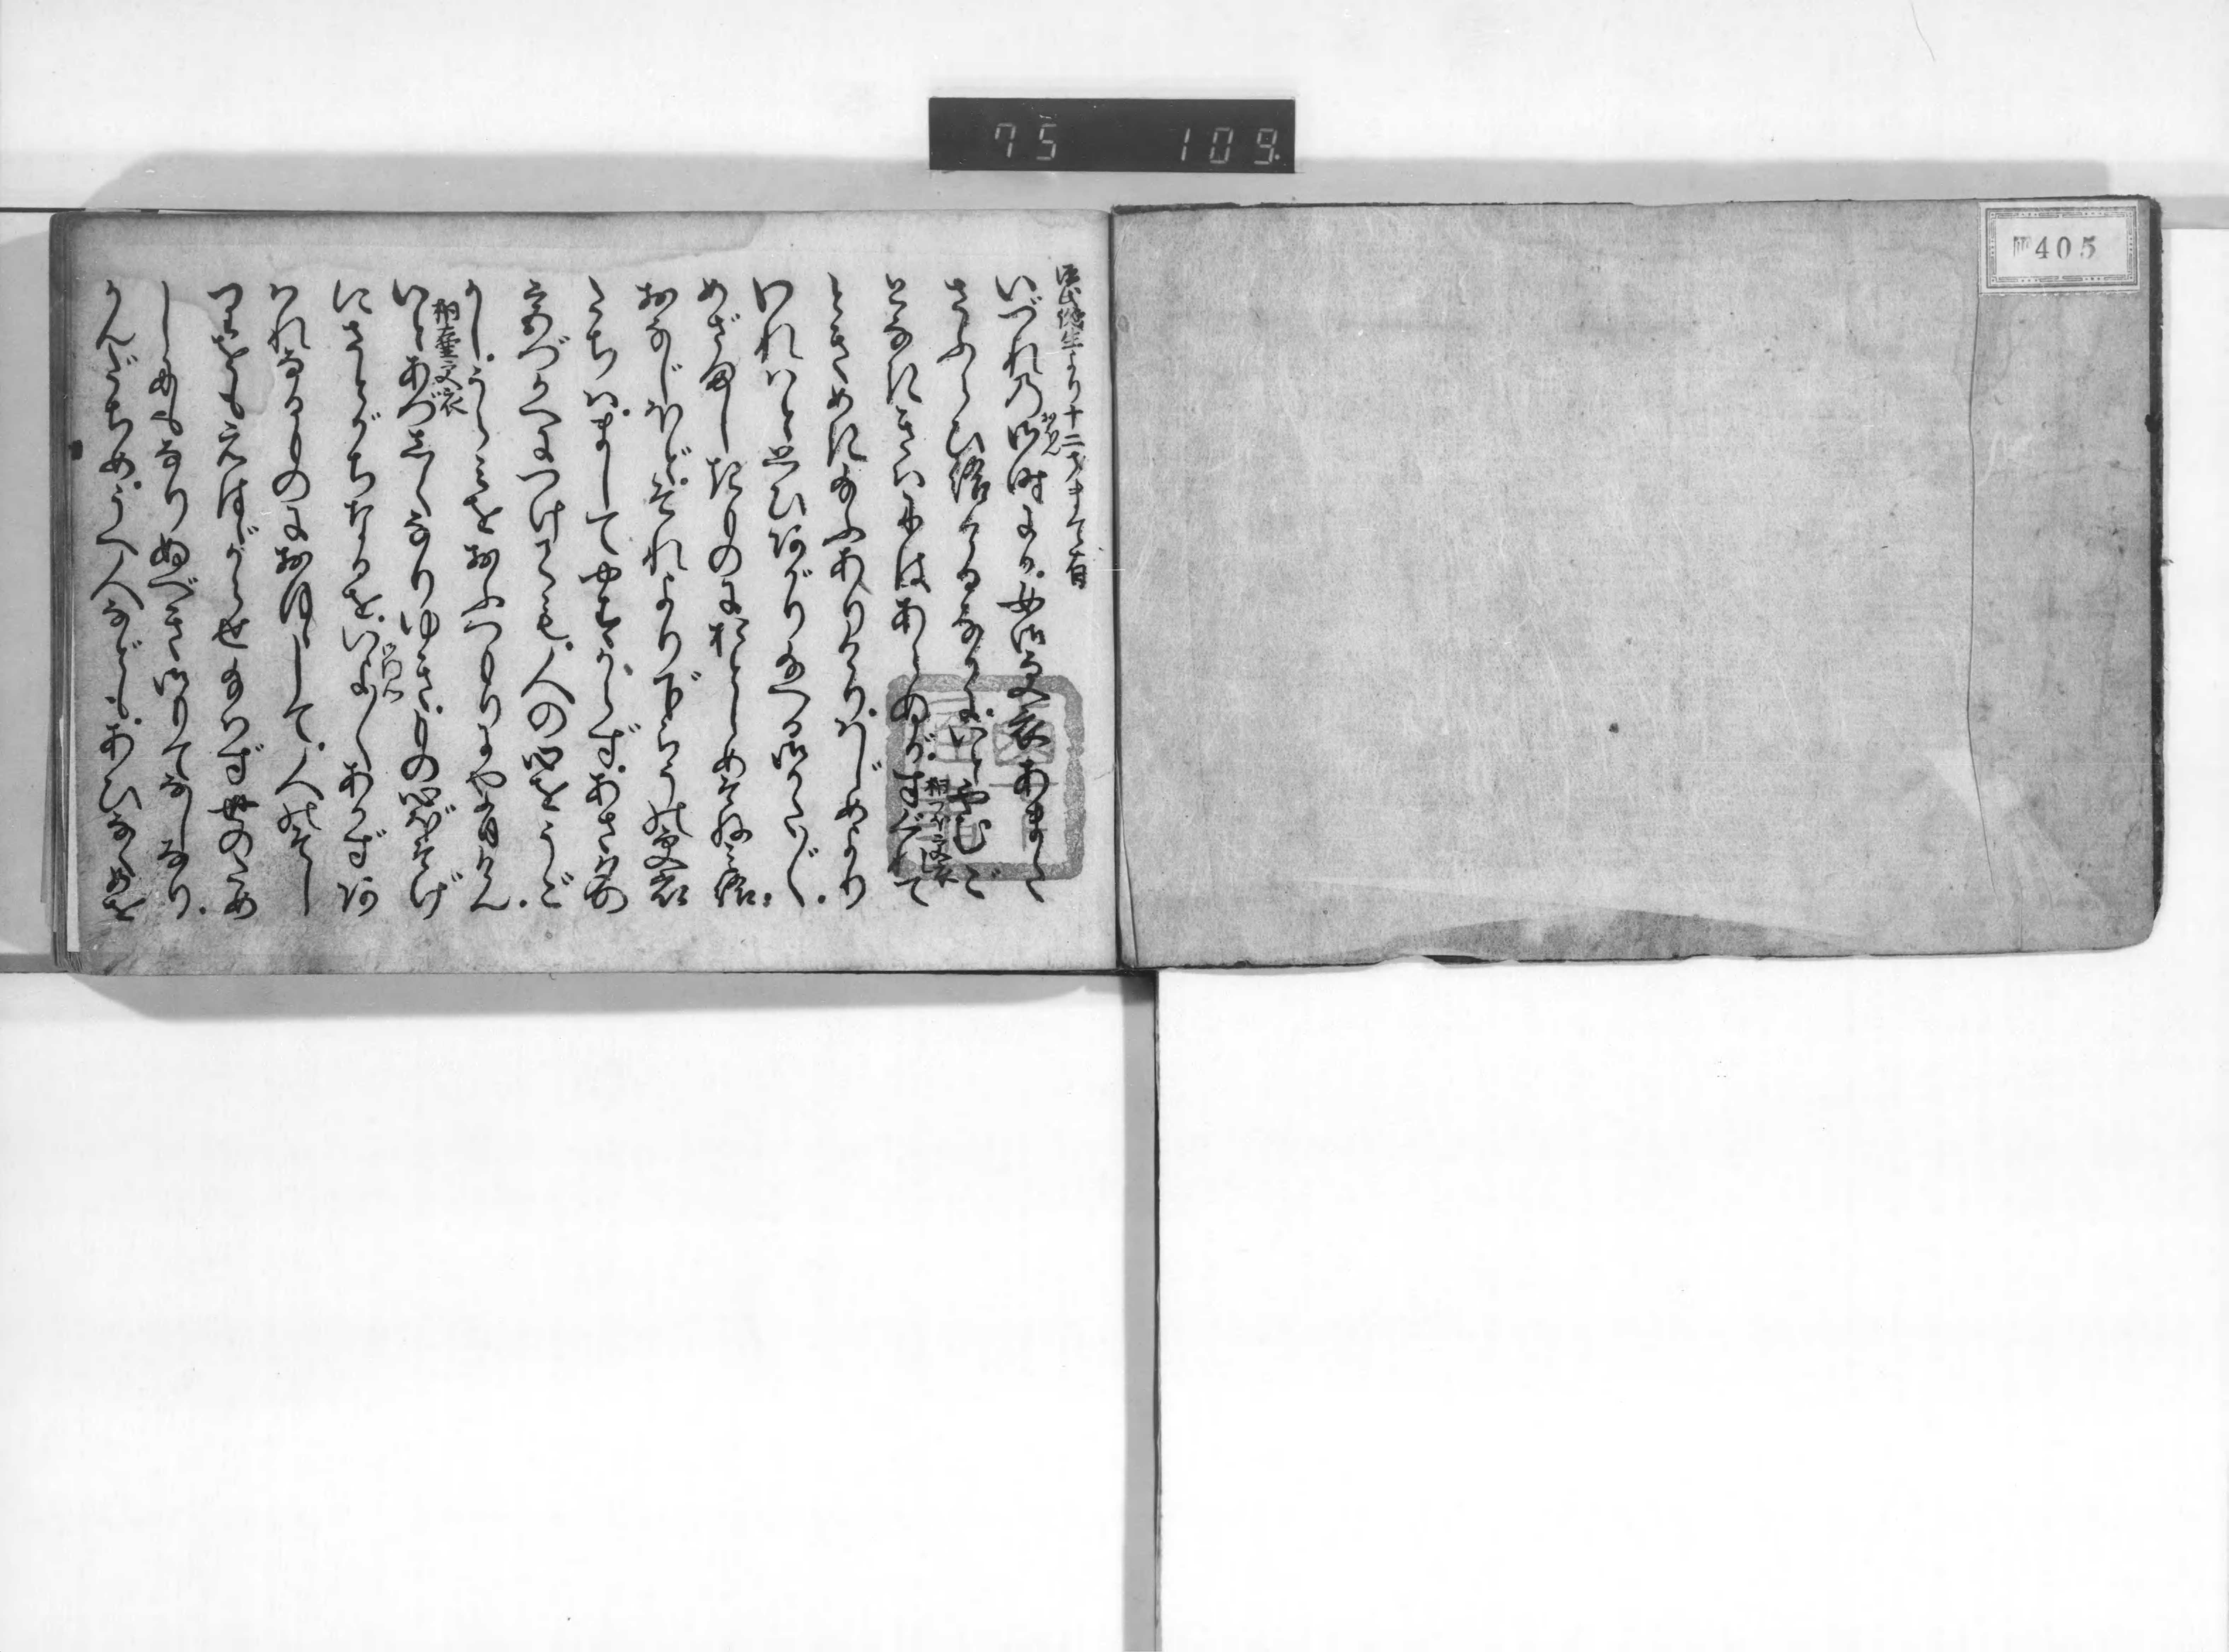 75 109.
405
源氏誕生より十二才まて有
いづれの御時にか。女御更衣あまた
おほん
さふらひ給ひけるなかに。いとやむご
となきゝはにはあらぬが。すぐれて
桐つほ更衣
ときめき給ふありけり。はじめより
われはと思ひあがり給へる御かた〴〵。
めざましきものにおとしめそねみ給。
おなじほど。それより下らうの更衣
たちは。ましてやすからず。あさゆふの
宮づかへにつけても。人の心をうご
かし。うらみをおふつもりにやありけん。
桐壺更衣
いとあづしくなりゆき。もの心ぼそげ
にさとがちなるを。いよ〳〵あかずあ
はれなるものにおぼほして。人のそし
りをもえはゞからせ給はず世のため
しにもなりぬべき御もてなしなり。
かんだちめ。うへ人なども。あひなくめを